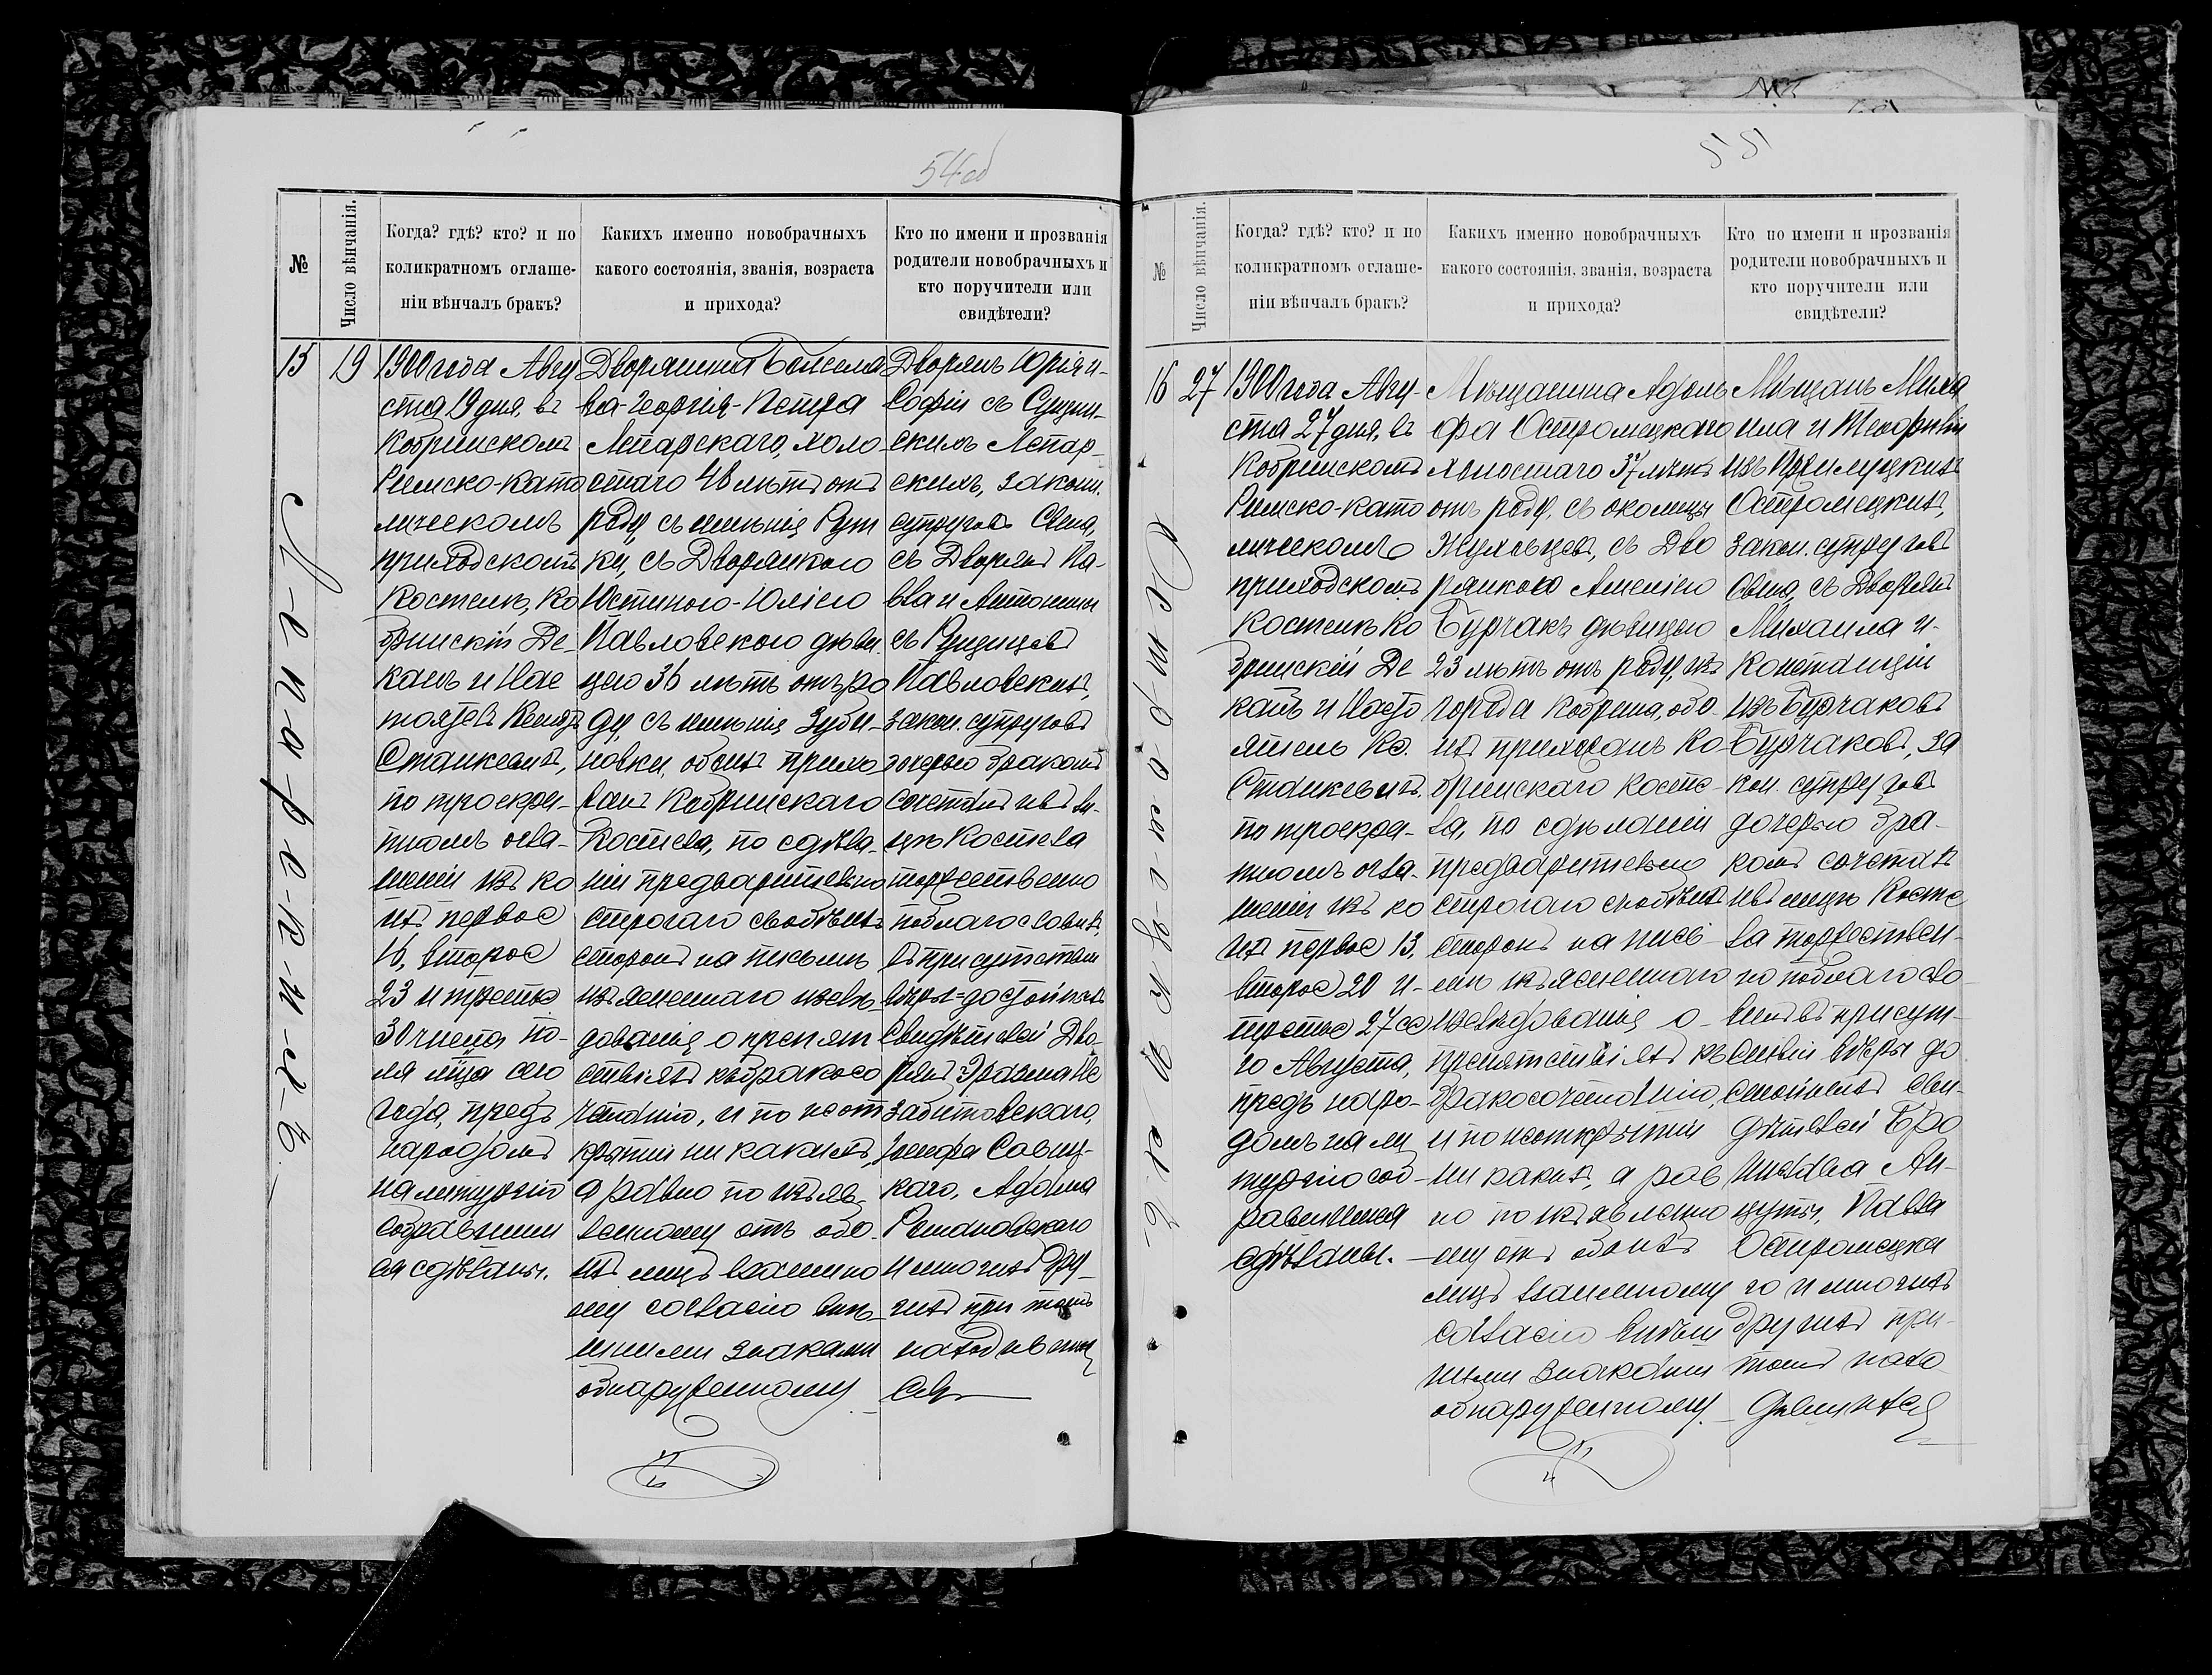 54об
№
Число вѣнчанія.
Когда? гдѣ? кто? и по
коликратномъ оглаше-
ніи вѣнчалъ бракъ?
Какихъ именно новобрачныхъ
какого состоянія, званія, возраста
и прихода?
Кто по имени и прозванія
родители новобрачныхъ и
кто поручители или
свидѣтели?
15
19
1900 года Авгу
ста 19 дня, въ
Кобринскомъ
Римско-като
лическомъ
приходскомъ
Костелѣ, Ко
бринскій Де-
канъ и Нас
тоятель Ксендзъ
Станкевичъ,
по троекра-
тномъ огла-
шеніи изъ ко
ихъ первое
16, второе
23 и третье
30 числа Iю-
ля мѣца сего
года, предъ
народомъ
на литургію
собравшим
ся сдѣланы.
Дворянина
ва-Георгія-Петра
холо
стаго 48 лѣтъ отъ
роду, съ имѣнія
ки, съ Дворянкою
Юстиною-Юліею
Павловскою дѣви
цею 36 лѣтъ отъ ро
ду, съ имѣнія Зуби-
новки, обоихъ прихо
жанъ Кобринскаго
Костела, по сдѣла-
ніи предварительно
строгаго съ обѣихъ
сторонъ на письмѣ
изъясненнаго изслѣ-
дованія о препят
ствіяхъ къ бракосо
четанію, и по неот
крытіи ни какихъ,
а равно по изъяв-
ленному отъ обо-
ихъ лицъ взаимно
му согласію внѣ-
шними знаками
обнаруженному
Дворянъ Юрія и-
Софіи съ
скихъ
скихъ, законн.
супруговъ Сына,
съ Дворянъ Па-
вла и Антонины
съ
Павловскихъ,
закон. супруговъ
дочерью бракомъ
сочеталъ и въ ли-
цѣ Костела
торжественно
поблагословилъ,
въ присутствіи
вѣры-достойныхъ
Свидѣтелей Дво-
рянъ Эразма Не
забитовскаго,
Iосифа Савиц-
каго, Адама
Романовскаго
и многихъ дру-
гихъ при томъ
находившихъ
ся
551
№
Число вѣнчанія.
Когда? гдѣ? кто? и по
коликратномъ оглаше-
ніи вѣнчалъ бракъ?
Какихъ именно новобрачныхъ
какого состоянія, званія, возраста
и прихода?
Кто по имени и прозванія
родители новобрачныхъ и
кто поручители или
свидѣтели?
16
27
1900 года Авгу-
ста 27 дня, въ
Кобринскомъ
Римско-като
лическомъ
приходскомъ
Костелѣ Ко
бринскій Де
канъ и Насто
ятель Кс.
Станкевичъ
по троекра-
тномъ огла-
шеніи изъ ко
ихъ первое 13,
второе 20 и-
третье 27 се
го Августа,
предъ наро-
домъ на ли
тургію соб-
равшимся
сдѣланы.
Мѣщанина Адоль
фа Остромецкаго
холостаго 37 лѣтъ
отъ роду, съ околицы
Жуховцевъ, съ Дво
рянкою Амеліею
Бурчакъ дѣвицею
23 лѣтъ отъ роду, изъ
города Кобрина, обо-
ихъ прихожанъ Ко
бринскаго Косте-
ла, по сдѣланіи
предварительно
строгаго съ обѣихъ
сторонъ на пись-
мѣ изъясненнаго
изслѣдованія о-
препятствіяхъ къ
бракосочетанію,
и по неоткрытіи
ни какихъ, а рав
но по изъявленно
му отъ обоихъ
лицъ взаимному
согласію внѣш
ними знаками
обнаруженному.
Мѣщанъ Миха
ила и Теофиліи
изъ
Остромецкихъ,
закон. супруговъ
Сына, съ Дворянъ
Михаила и-
Констанціи
изъ Бурчаковъ
Бурчаковъ, за
кон. супруговъ
дочерью бра-
комъ сочеталъ
и въ лицѣ Косте
ла торжествен-
но поблагосло-
вилъ въ присут-
ствіи вѣры до
стойныхъ сви-
дѣтелей Бро
нислава Ан-
цуты, Павла
Остромецка
го и многихъ
другихъ при-
томъ нахо
дившихся